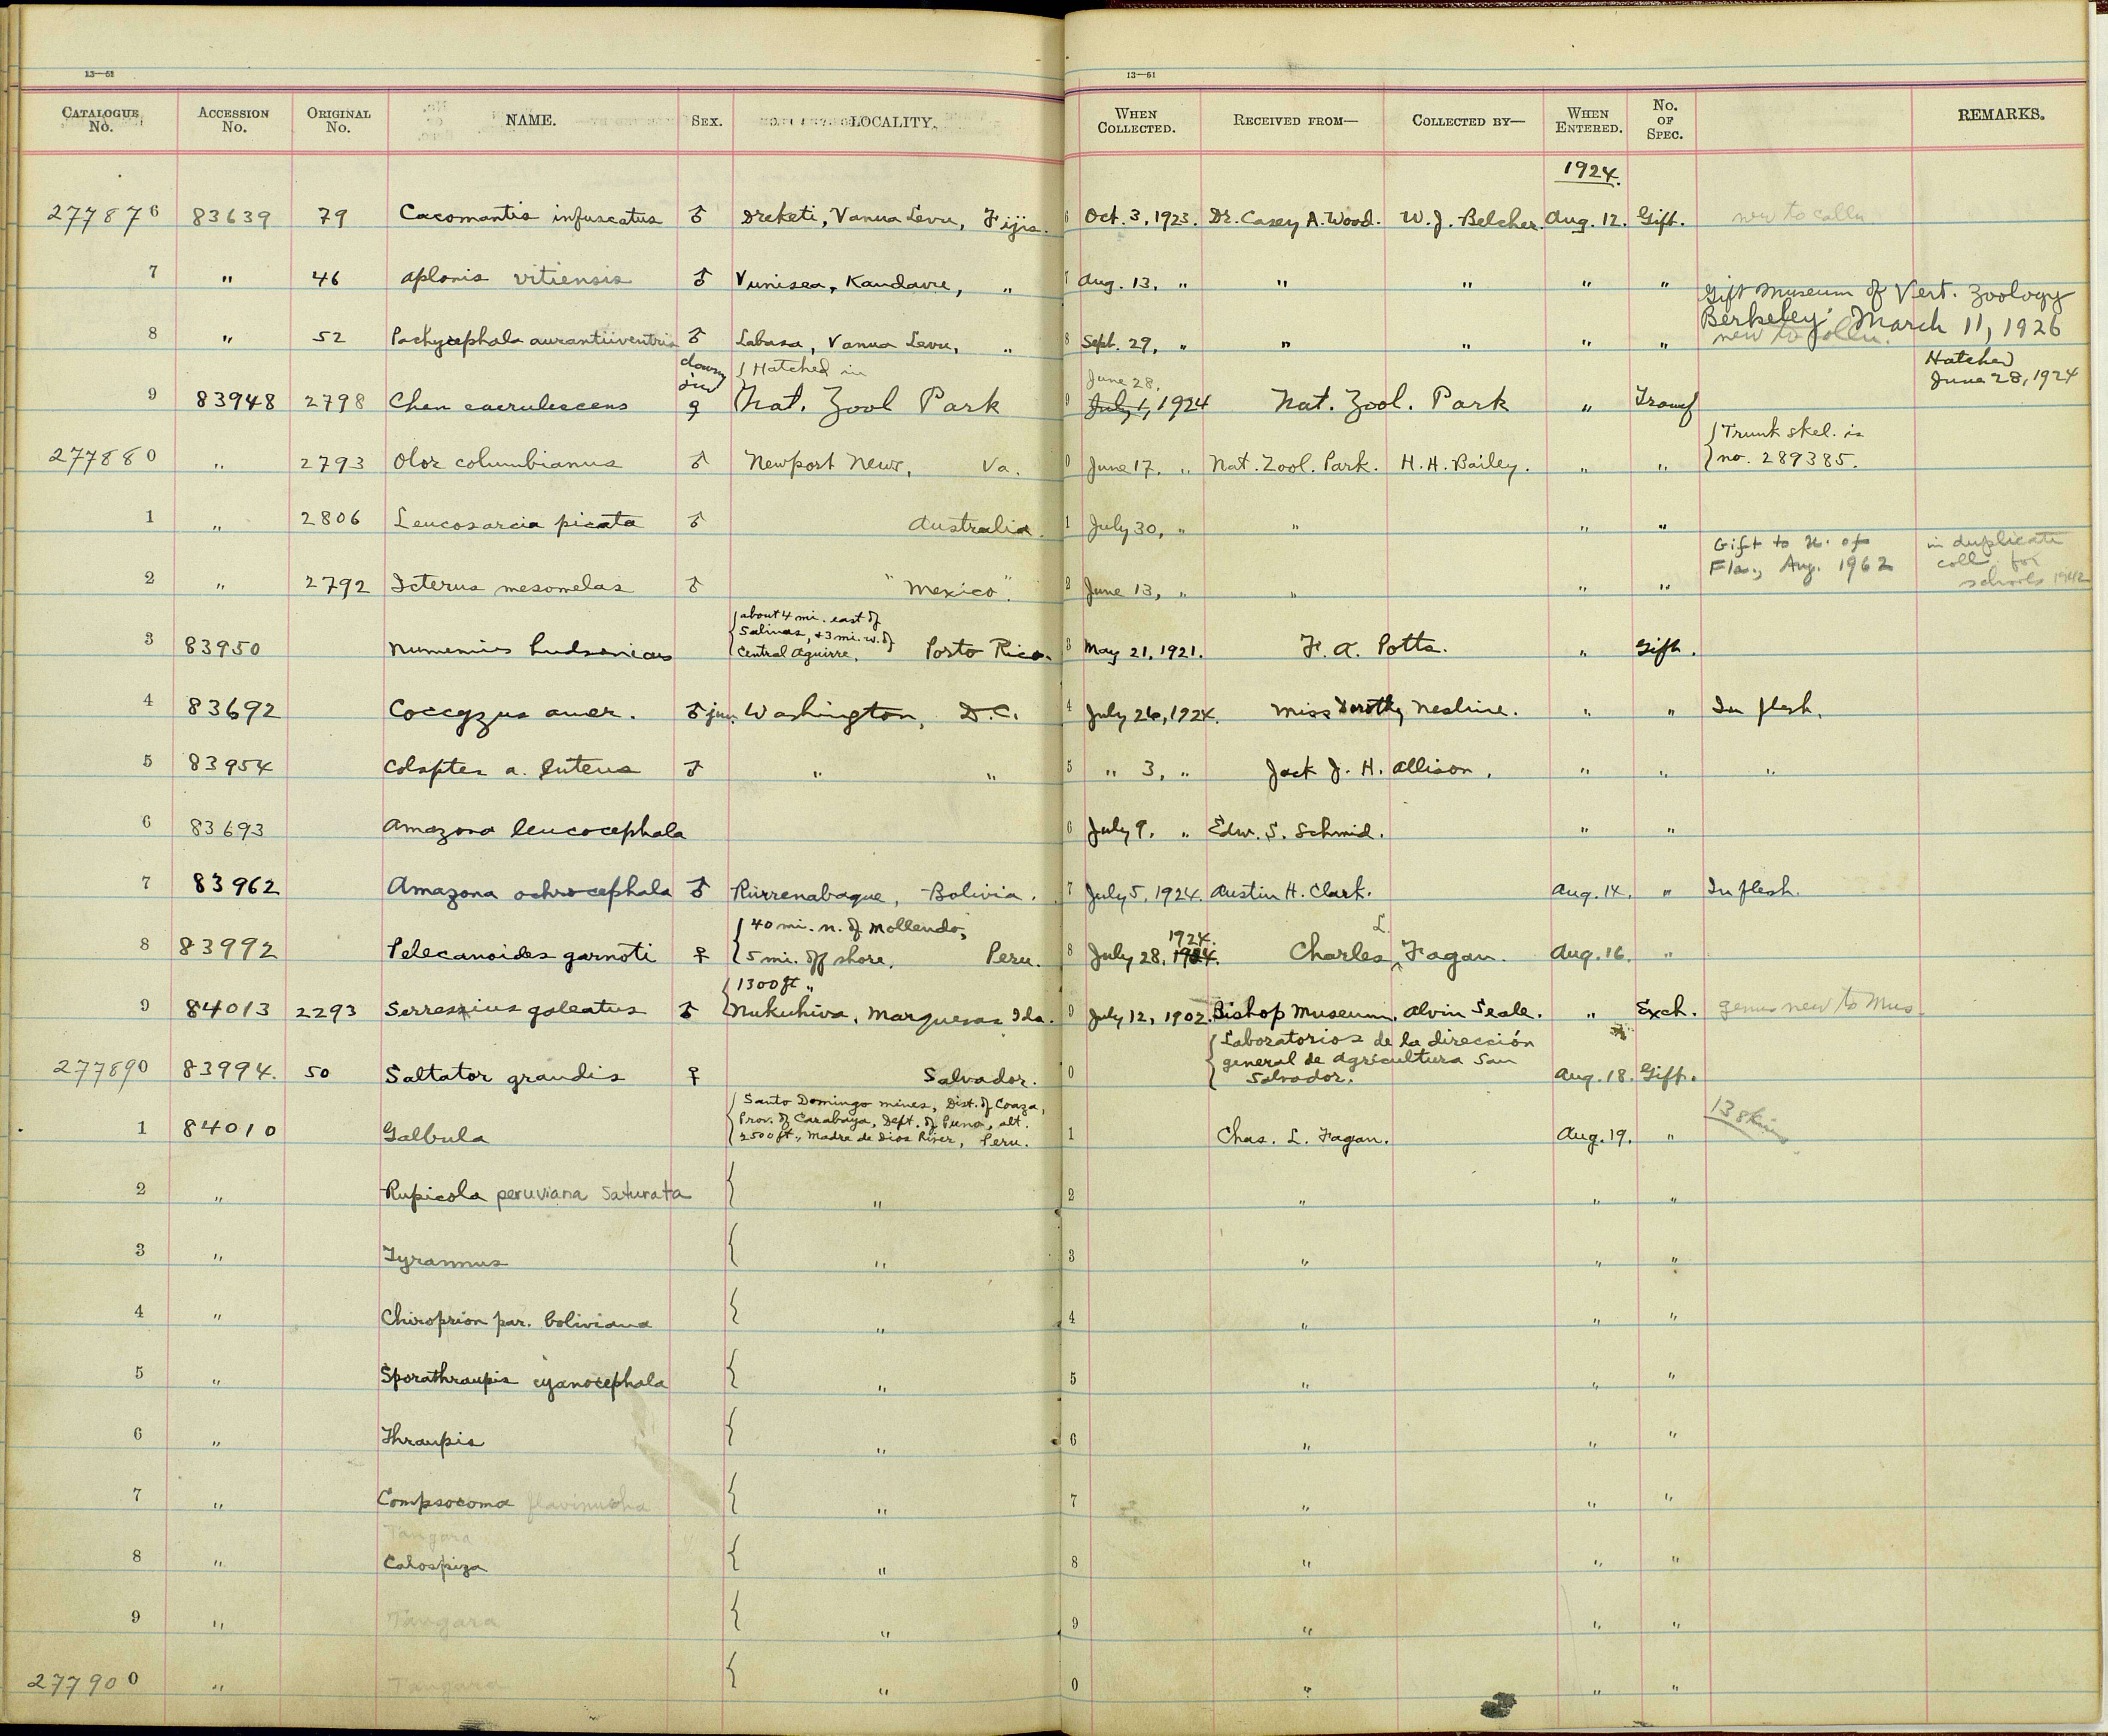 13—61 13—61
CATALOGUE No. ACCESSION No. ORIGINAL No. NAME. SEX. LOCALITY. WHEN COLLECTED. RECEIVED FROM— COLLECTED BY— WHEN ENTERED. No. OF SPEC. REMARKS.
1924.
277876 83639 79 Cacomantis infuscatus ♂ Dreketi, Vanua Levu, Fijis. 6 Oct. 3, 1923. Dr. Casey A. Wood. W. J. Belcher. Aug. 12. Gift. new to colln
7 " 46 Aplonis vitiensis ♂ Vunisea, Kandavre, " 7 Aug. 13, " " " " " Gift Museum of Vert. Zoology
Berkeley. March 11, 1926
8 " 52 Pachycephala aurantiiventris ♂ Labasa, Vanua Levu, " 8 Sept. 29, " " " " " new to colln.
downy juv { Hatched in June 28, Hatched June 28, 1924
9 83948 2798 Chen caerulescens ♀ Nat. Zool Park 9 July 1, 1924 Nat. Zool. Park " Transf
277880 " 2793 Olor columbianus ♂ Newport News, Va. 0 June 17, " Nat. Zool. Park. H. H. Bailey. " " { Trunk skel. is
no. 289385.
1 " 2806 Leucosarcia picata ♂ Australia. 1 July 30, " " " "
2 " 2792 Icterus mesomelas ♂ "Mexico". 2 June 13, " " " " Gift to U. of
Fla., Aug. 1962 in duplicate
coll. for
schools 1942
{ about 4 mi. east of
Salinas, & 3 mi. w. of
3 83950 Numenius hudsonicus Central Aguirre, Porto Rico. 3 May 21, 1921. F. A. Potts. " Gift.
4 83692 Coccyzus amer. ♂ juv. Washington, D.C. 4 July 26, 1924. Miss Dorothy Nesline. " " In flesh.
5 83954 Colaptes a. luteus ♂ " " 5 " 3, " Jack J. H. Allison. " " "
6 83693 Amazona leucocephala 6 July 9, " Edw. S. Schmid. " "
7 83962 Amazona ochrocephala ♂ Rurrenabaque, Bolivia. 7 July 5, 1924. Austin H. Clark. Aug. 14. " In flesh.
{ 40 mi. n. of Mollendo, 1924. L.
8 83992 Pelecanoides garnoti ♀ 5 mi. off shore. Peru. 8 July 28, 1924. Charles Fagan. Aug. 16. "
{ 1300 ft "
9 84013 2293 Serresius galeatus ♂ Nukuhiva, Marquesas Ids. 9 July 12, 1902. Bishop Museum. Alvin Seale. " Exch. genus new to Mus.
{ Laboratorios de la dirección
general de agricultura San
277890 83994. 50 Saltator grandis ♀ Salvador. 0 Salvador. Aug. 18. Gift.
{ Santo Domingo mines, Dist. of Coaza,
Prov. of Carabaya, Dept. of Puno, alt.
1 84010 Galbula 2500 ft., Madre de Dios River, Peru. 1 Chas. L. Fagan. Aug. 19. " 13 skins
2 " Rupicola peruviana saturata { " 2 " " "
3 " Tyrannus { " 3 " " "
4 " Chiroprion par. boliviana { " 4 " " "
5 " Sporathraupis cyanocephala { " 5 " " "
6 " Thraupis { " 6 " " "
7 " Compsocoma flavinucha { " 7 " " "
Tangara
8 " Calospiza { " 8 " " "
9 " Tangara { " 9 " " "
277900 " Tangara { " 0 " " "